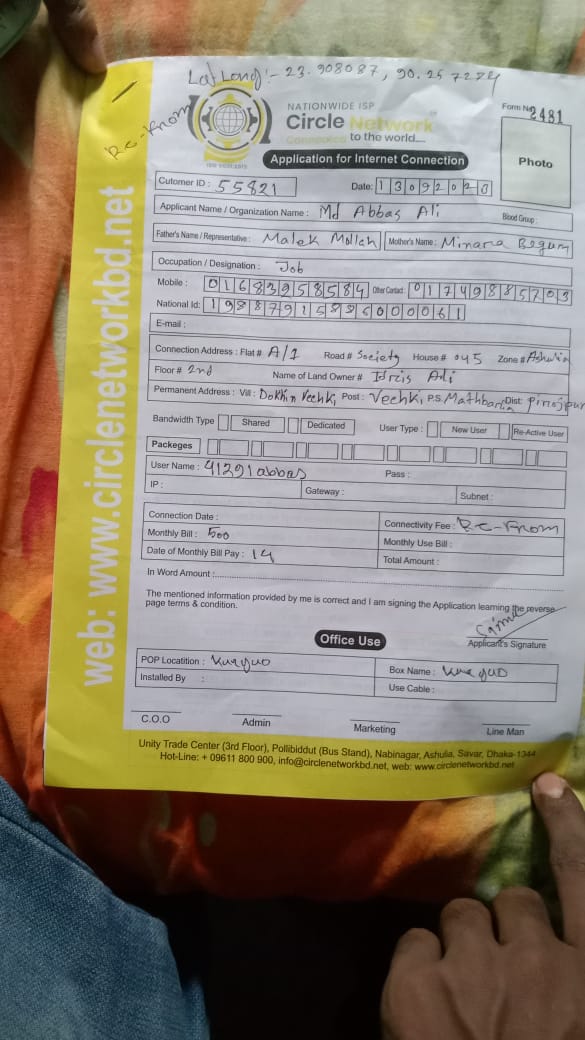 Lat Long :- 23.908087, 90.257274
Re-From
NATIONWIDE ISP
Circle Network
Connected to the world...
Form No 2481
Photo
Application for Internet Connection
web: www.circlenetworkbd.net
Cutomer ID : 55821 Date: 13092020
Applicant Name / Organization Name : Md Abbas Ali Blood Group :
Father's Name / Representative : Malek Mollah Mother's Name : Minara Begum
Occupation / Designation : Job
Mobile : 01683958584 Other Contact : 01749885703
National Id:
E-mail :
Connection Address : Flat # A/1 Road # Society House # 045 Zone # Ashulia
Floor # 2nd Name of Land Owner # Idris Ali
Permanent Address : Vill : Dokhin Vechki Post : Vechki P.S. Mathbaria Dist: Pirojpur
Bandwidth Type Shared Dedicated User Type : New User Re-Active User
Packeges
User Name : 41291abbas Pass :
IP : Gateway : Subnet :
Connection Date : Connectivity Fee : Re-From
Monthly Bill : 500 Monthly Use Bill :
Date of Monthly Bill Pay : 14 Total Amount :
In Word Amount :
The mentioned information provided by me is correct and I am signing the Application learning the reverse
page terms & condition.
Applicant's Signature
Office Use
POP Locatition : Box Name :
Installed By : Use Cable :
C.O.O Admin Marketing Line Man
Unity Trade Center (3rd Floor), Pollibiddut (Bus Stand), Nabinagar, Ashulia, Savar, Dhaka-1344
Hot-Line: + 09611 800 900, info@circlenetworkbd.net, web: www.circlenetworkbd.net